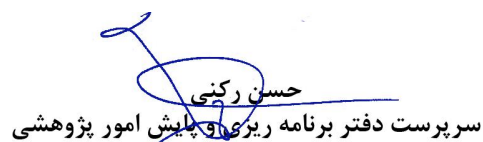 حسن رکنی
سرپرست دفتر برنامه ریزی و پایش امور پژوهشی